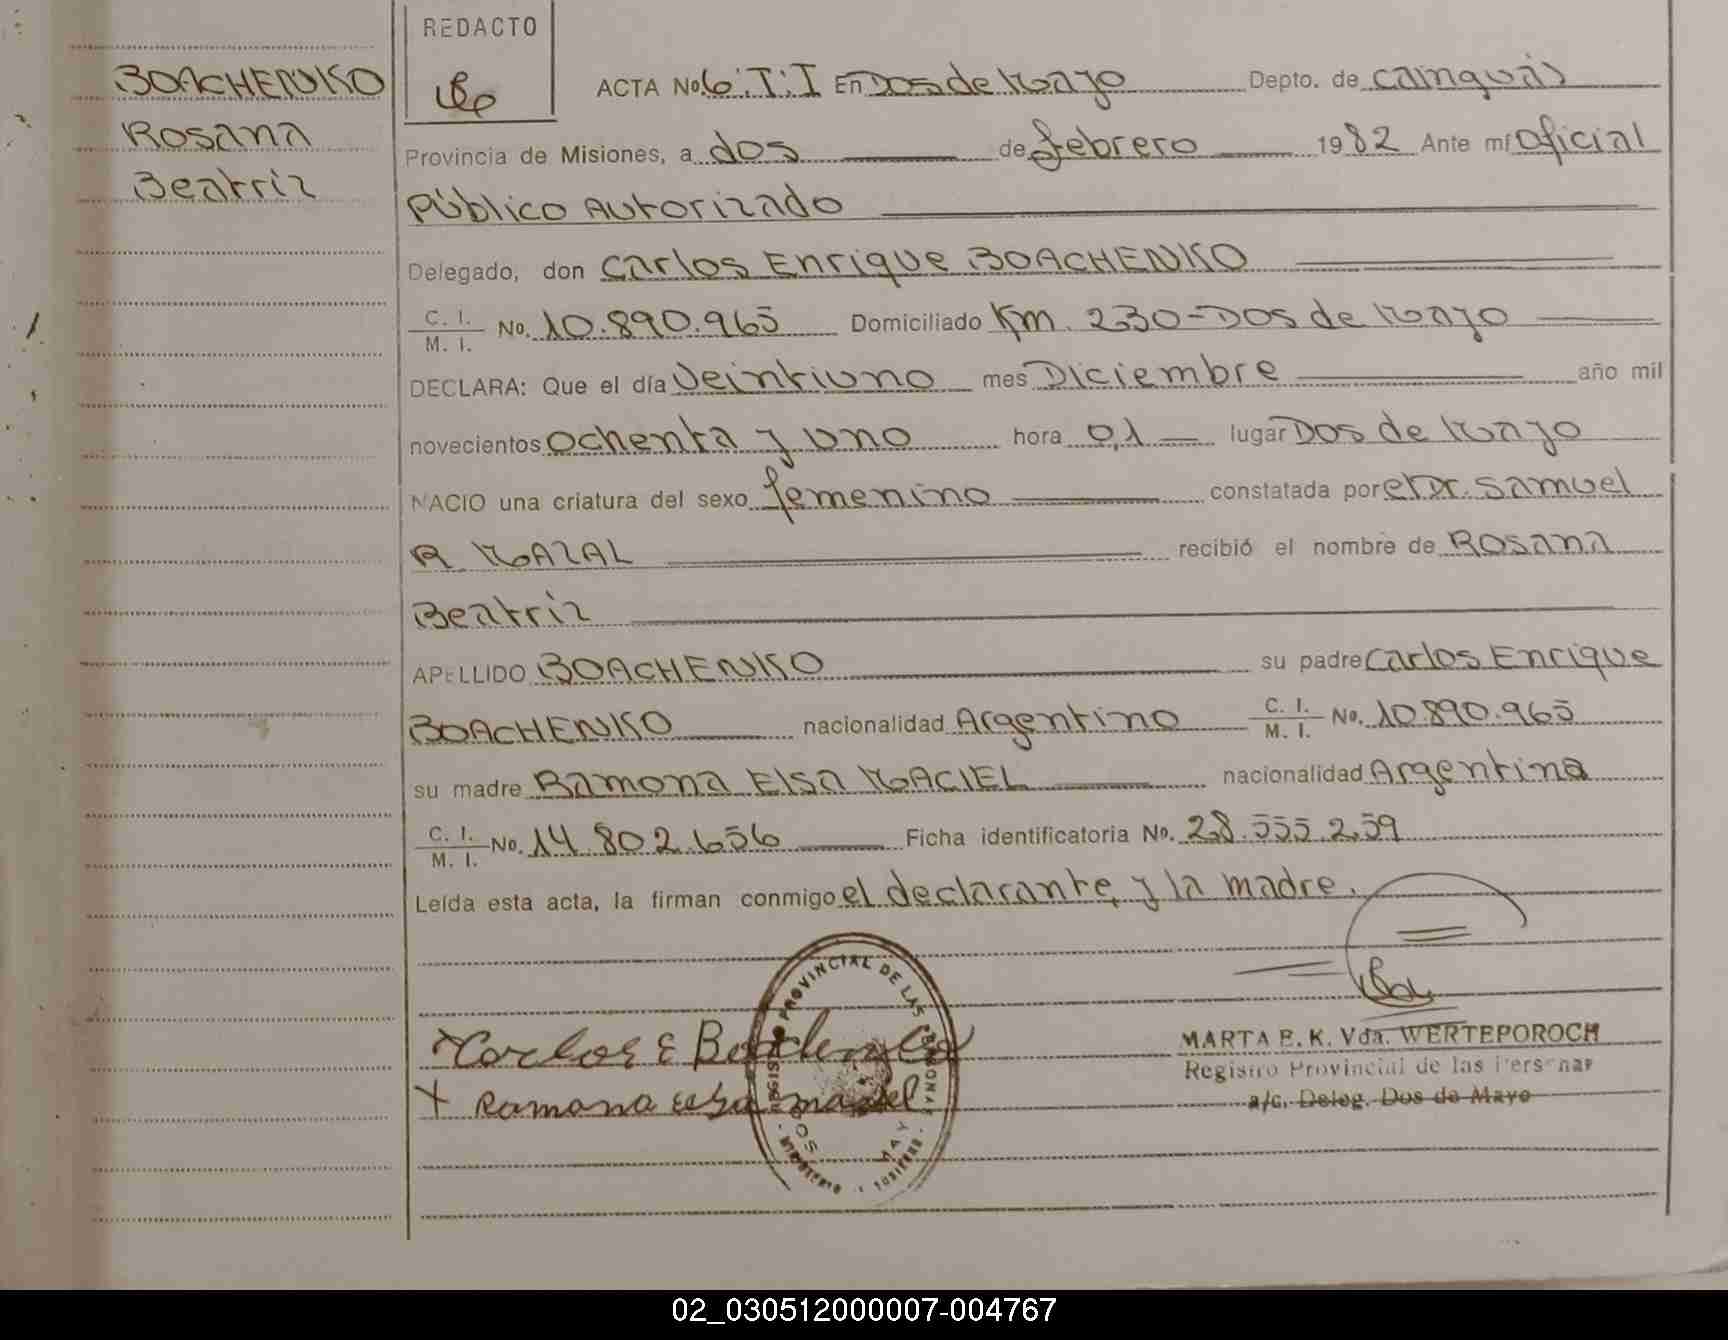 BOACHENKO
Rosana
Beatriz
REDACTO
ACTA No. 6:T:I En Dos de Mayo Depto. de Cainguás
Provincia de Misiones, a dos de febrero 1982 Ante mí Oficial
Público Autorizado
Delegado, don Carlos Enrique BOACHENKO
C. I. / M. I. No. 10.890.965 Domiciliado Km. 230-Dos de Mayo
DECLARA: Que el día Veintiuno mes Diciembre año mil
novecientos ochenta y uno hora 0,1 lugar Dos de Mayo
NACIO una criatura del sexo femenino constatada por el Dr. Samuel
R. MAZAL recibió el nombre de Rosana
Beatriz
APELLIDO BOACHENKO su padre Carlos Enrique
BOACHENKO nacionalidad Argentino C. I. / M. I. No. 10.890.965
su madre Ramona Elsa MACIEL nacionalidad Argentina
C. I. / M. I. No. 14.802.656 Ficha identificatoria No. 28.555.259
Leída esta acta, la firman conmigo el declarante, y la madre.
REGISTRO PROVINCIAL DE LAS PERSONAS
DOS MAYO
MINISTERIO
Carlos E Boachenko
x Ramona elsa maciel
MARTA E. K. Vda. WERTEPOROCH
Registro Provincial de las Personas
a/c. Deleg. Dos de Mayo
02_030512000007-004767